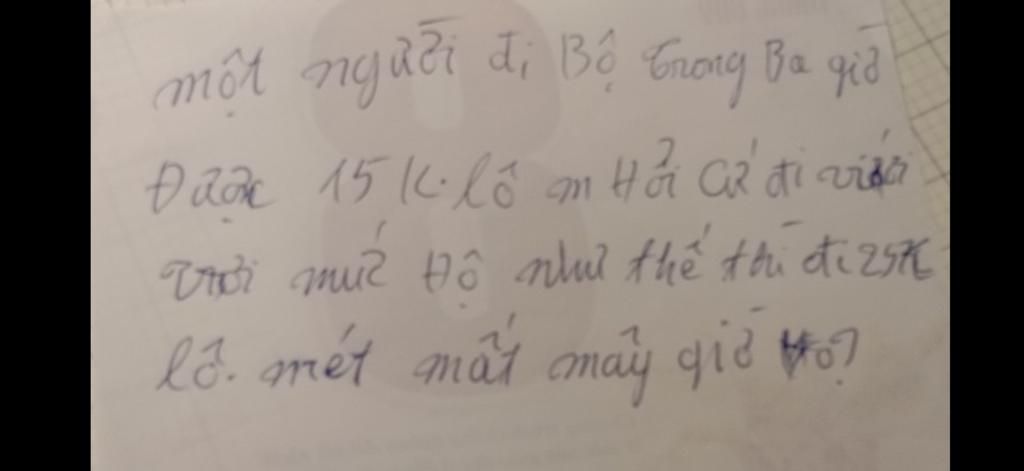 một người đi Bộ trong Ba giờ
Được 15 K. lô m Hỏi Cứ đi
với mức độ như thế thì đi 25 K
lô. mét mất mấy giờ